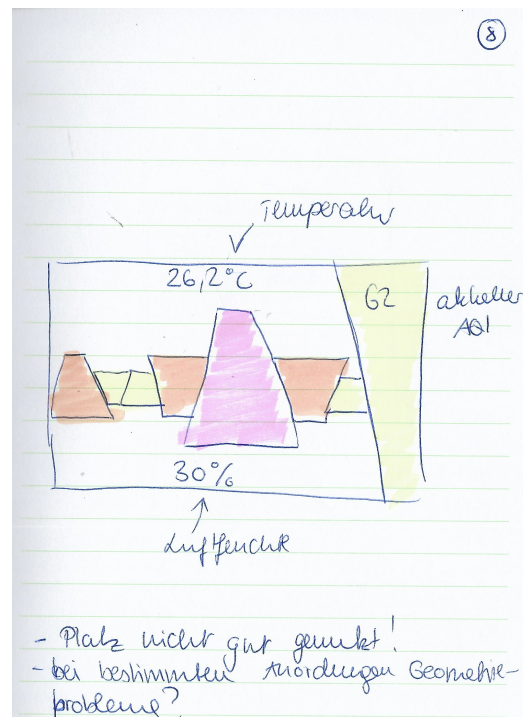 8
Temperatur
26,2°C
62
aktueller
AQI
30%
Luftfeuchte
- Platz nicht gut genutzt!
- bei bestimmten Anordnungen Geometrie-
probleme?